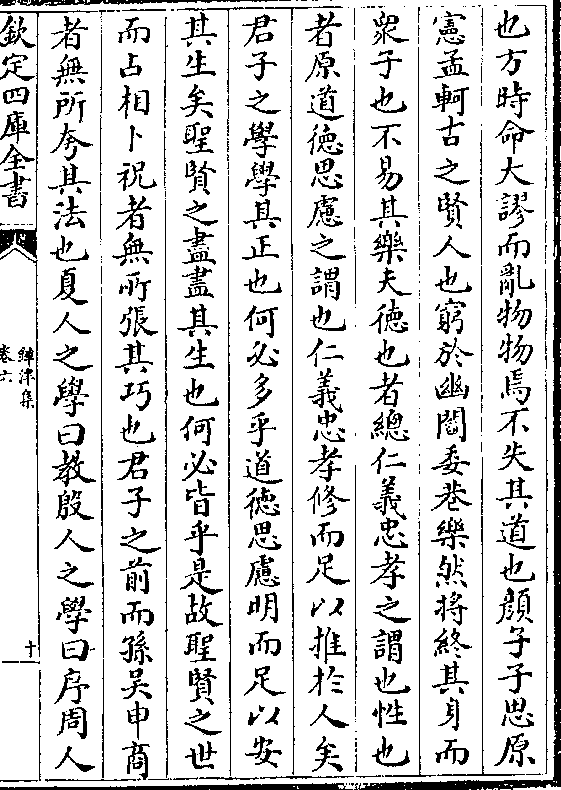 也方時命大謬而亂物物焉不失其道也顏子子思原
憲孟軻古之賢人也窮於幽閻委巷樂然將終其身而
衆子也不易其樂夫德也者總仁義忠孝之謂也性也
者原道德思慮之謂也仁義忠孝修而足以推於人矣
君子之學學其正也何必多乎道德思慮明而足以安
其生矣聖賢之盡盡其生也何必皆乎是故聖賢之世
而占相卜祝者無所張其巧也君子之前而孫吴申商
者無所夸其法也夏人之學曰教殷人之學曰序周人
欽定四庫全書
鐔津集
卷六
十